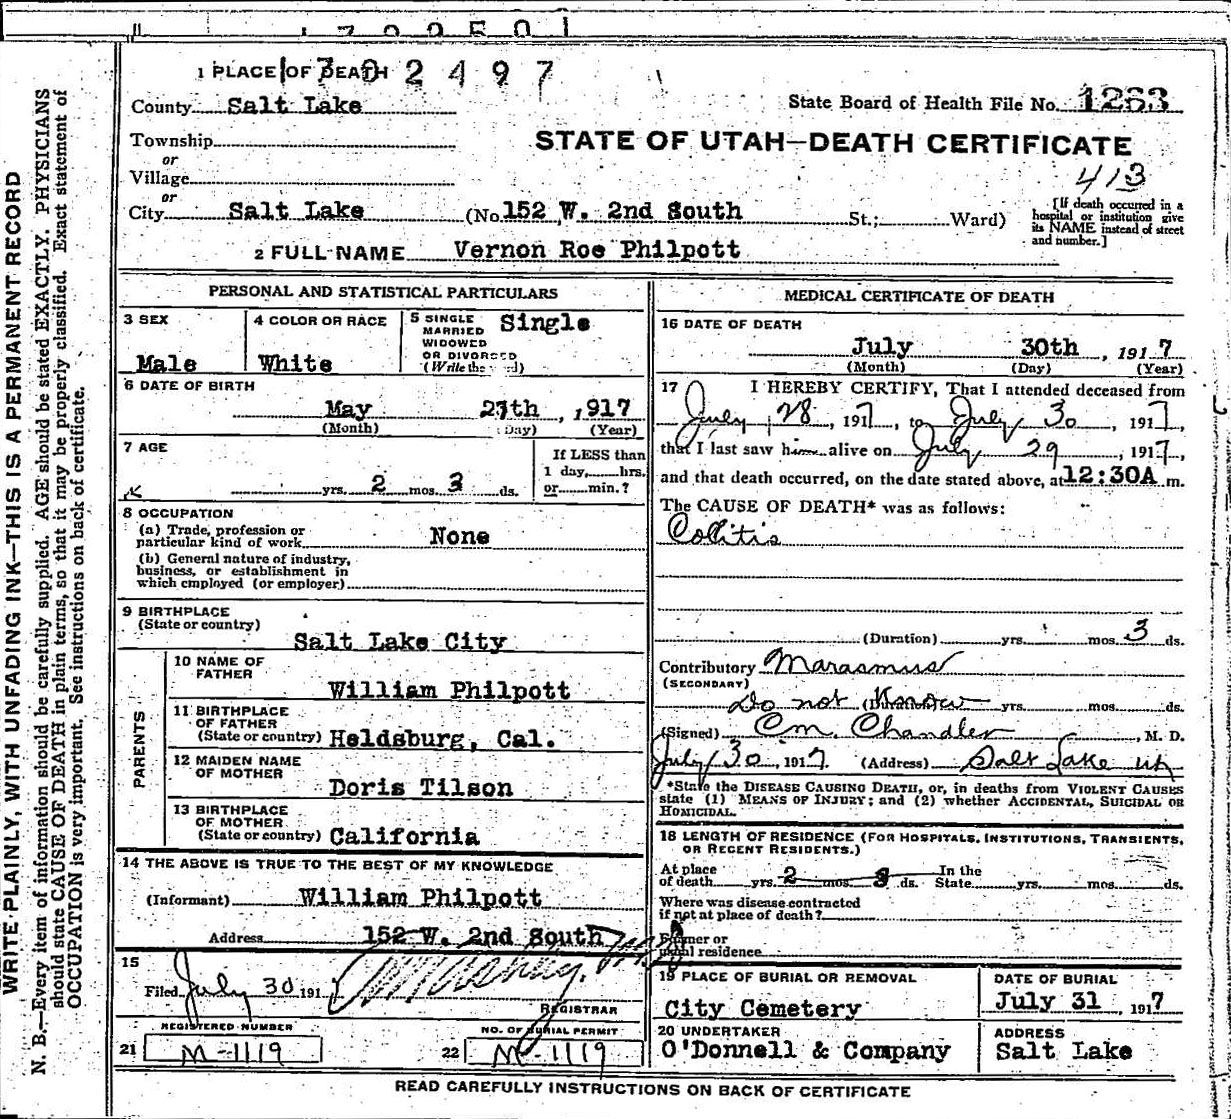 1 PLACE OF DEATH 1702497
County Salt Lake
State Board of Health File No. 1263
Township
STATE OF UTAH—DEATH CERTIFICATE
or
Village
413
or
City Salt Lake (No. 152 W. 2nd South St.; Ward)
[If death occurred in a
hospital or institution give
its NAME instead of street
and number.]
2 FULL NAME Vernon Roe Philpott
PERSONAL AND STATISTICAL PARTICULARS
3 SEX
Male
4 COLOR OR RACE
White
5 SINGLE
MARRIED
WIDOWED
OR DIVORCED
(Write the word)
Single
6 DATE OF BIRTH
May 27th, 1917
(Month) (Day) (Year)
7 AGE
yrs. 2 mos. 3 ds.
If LESS than
1 day, hrs.
or min.?
8 OCCUPATION
(a) Trade, profession or
particular kind of work None
(b) General nature of industry,
business, or establishment in
which employed (or employer)
9 BIRTHPLACE
(State or country)
Salt Lake City
PARENTS
10 NAME OF
FATHER
William Philpott
11 BIRTHPLACE
OF FATHER
(State or country) Heldsburg, Cal.
12 MAIDEN NAME
OF MOTHER
Doris Tilson
13 BIRTHPLACE
OF MOTHER
(State or country) California
14 THE ABOVE IS TRUE TO THE BEST OF MY KNOWLEDGE
(Informant) William Philpott
Address 152 W. 2nd South
15
Filed July 30 191
REGISTRAR
REGISTERED NUMBER
21 M-1119
NO. OF BURIAL PERMIT
22 M-1119
MEDICAL CERTIFICATE OF DEATH
16 DATE OF DEATH
July 30th, 1917
(Month) (Day) (Year)
17 I HEREBY CERTIFY, That I attended deceased from
July 28, 1917, to July 30, 1917,
that I last saw him alive on July 29, 1917,
and that death occurred, on the date stated above, at 12:30A m.
The CAUSE OF DEATH* was as follows:
Collitis
(Duration) yrs. mos. 3 ds.
Contributory Marasmus
(SECONDARY)
Do not Know (Duration) yrs. mos. ds.
(Signed) Cm. Chandler, M. D.
July 30, 1917. (Address) Salt Lake Ut
*State the DISEASE CAUSING DEATH, or, in deaths from VIOLENT CAUSES
state (1) MEANS OF INJURY; and (2) whether ACCIDENTAL, SUICIDAL OR
HOMICIDAL.
18 LENGTH OF RESIDENCE (FOR HOSPITALS, INSTITUTIONS, TRANSIENTS,
OR RECENT RESIDENTS.)
At place
of death yrs. 2 mos. 3 ds. In the
State yrs. mos. ds.
Where was disease contracted
if not at place of death?
Former or
usual residence
19 PLACE OF BURIAL OR REMOVAL
City Cemetery
DATE OF BURIAL
July 31 1917
20 UNDERTAKER
O'Donnell & Company
ADDRESS
Salt Lake
READ CAREFULLY INSTRUCTIONS ON BACK OF CERTIFICATE
WRITE PLAINLY, WITH UNFADING INK—THIS IS A PERMANENT RECORD
N. B.—Every item of information should be carefully supplied. AGE should be stated EXACTLY. PHYSICIANS
should state CAUSE OF DEATH in plain terms, so that it may be properly classified. Exact statement of
OCCUPATION is very important. See instructions on back of certificate.